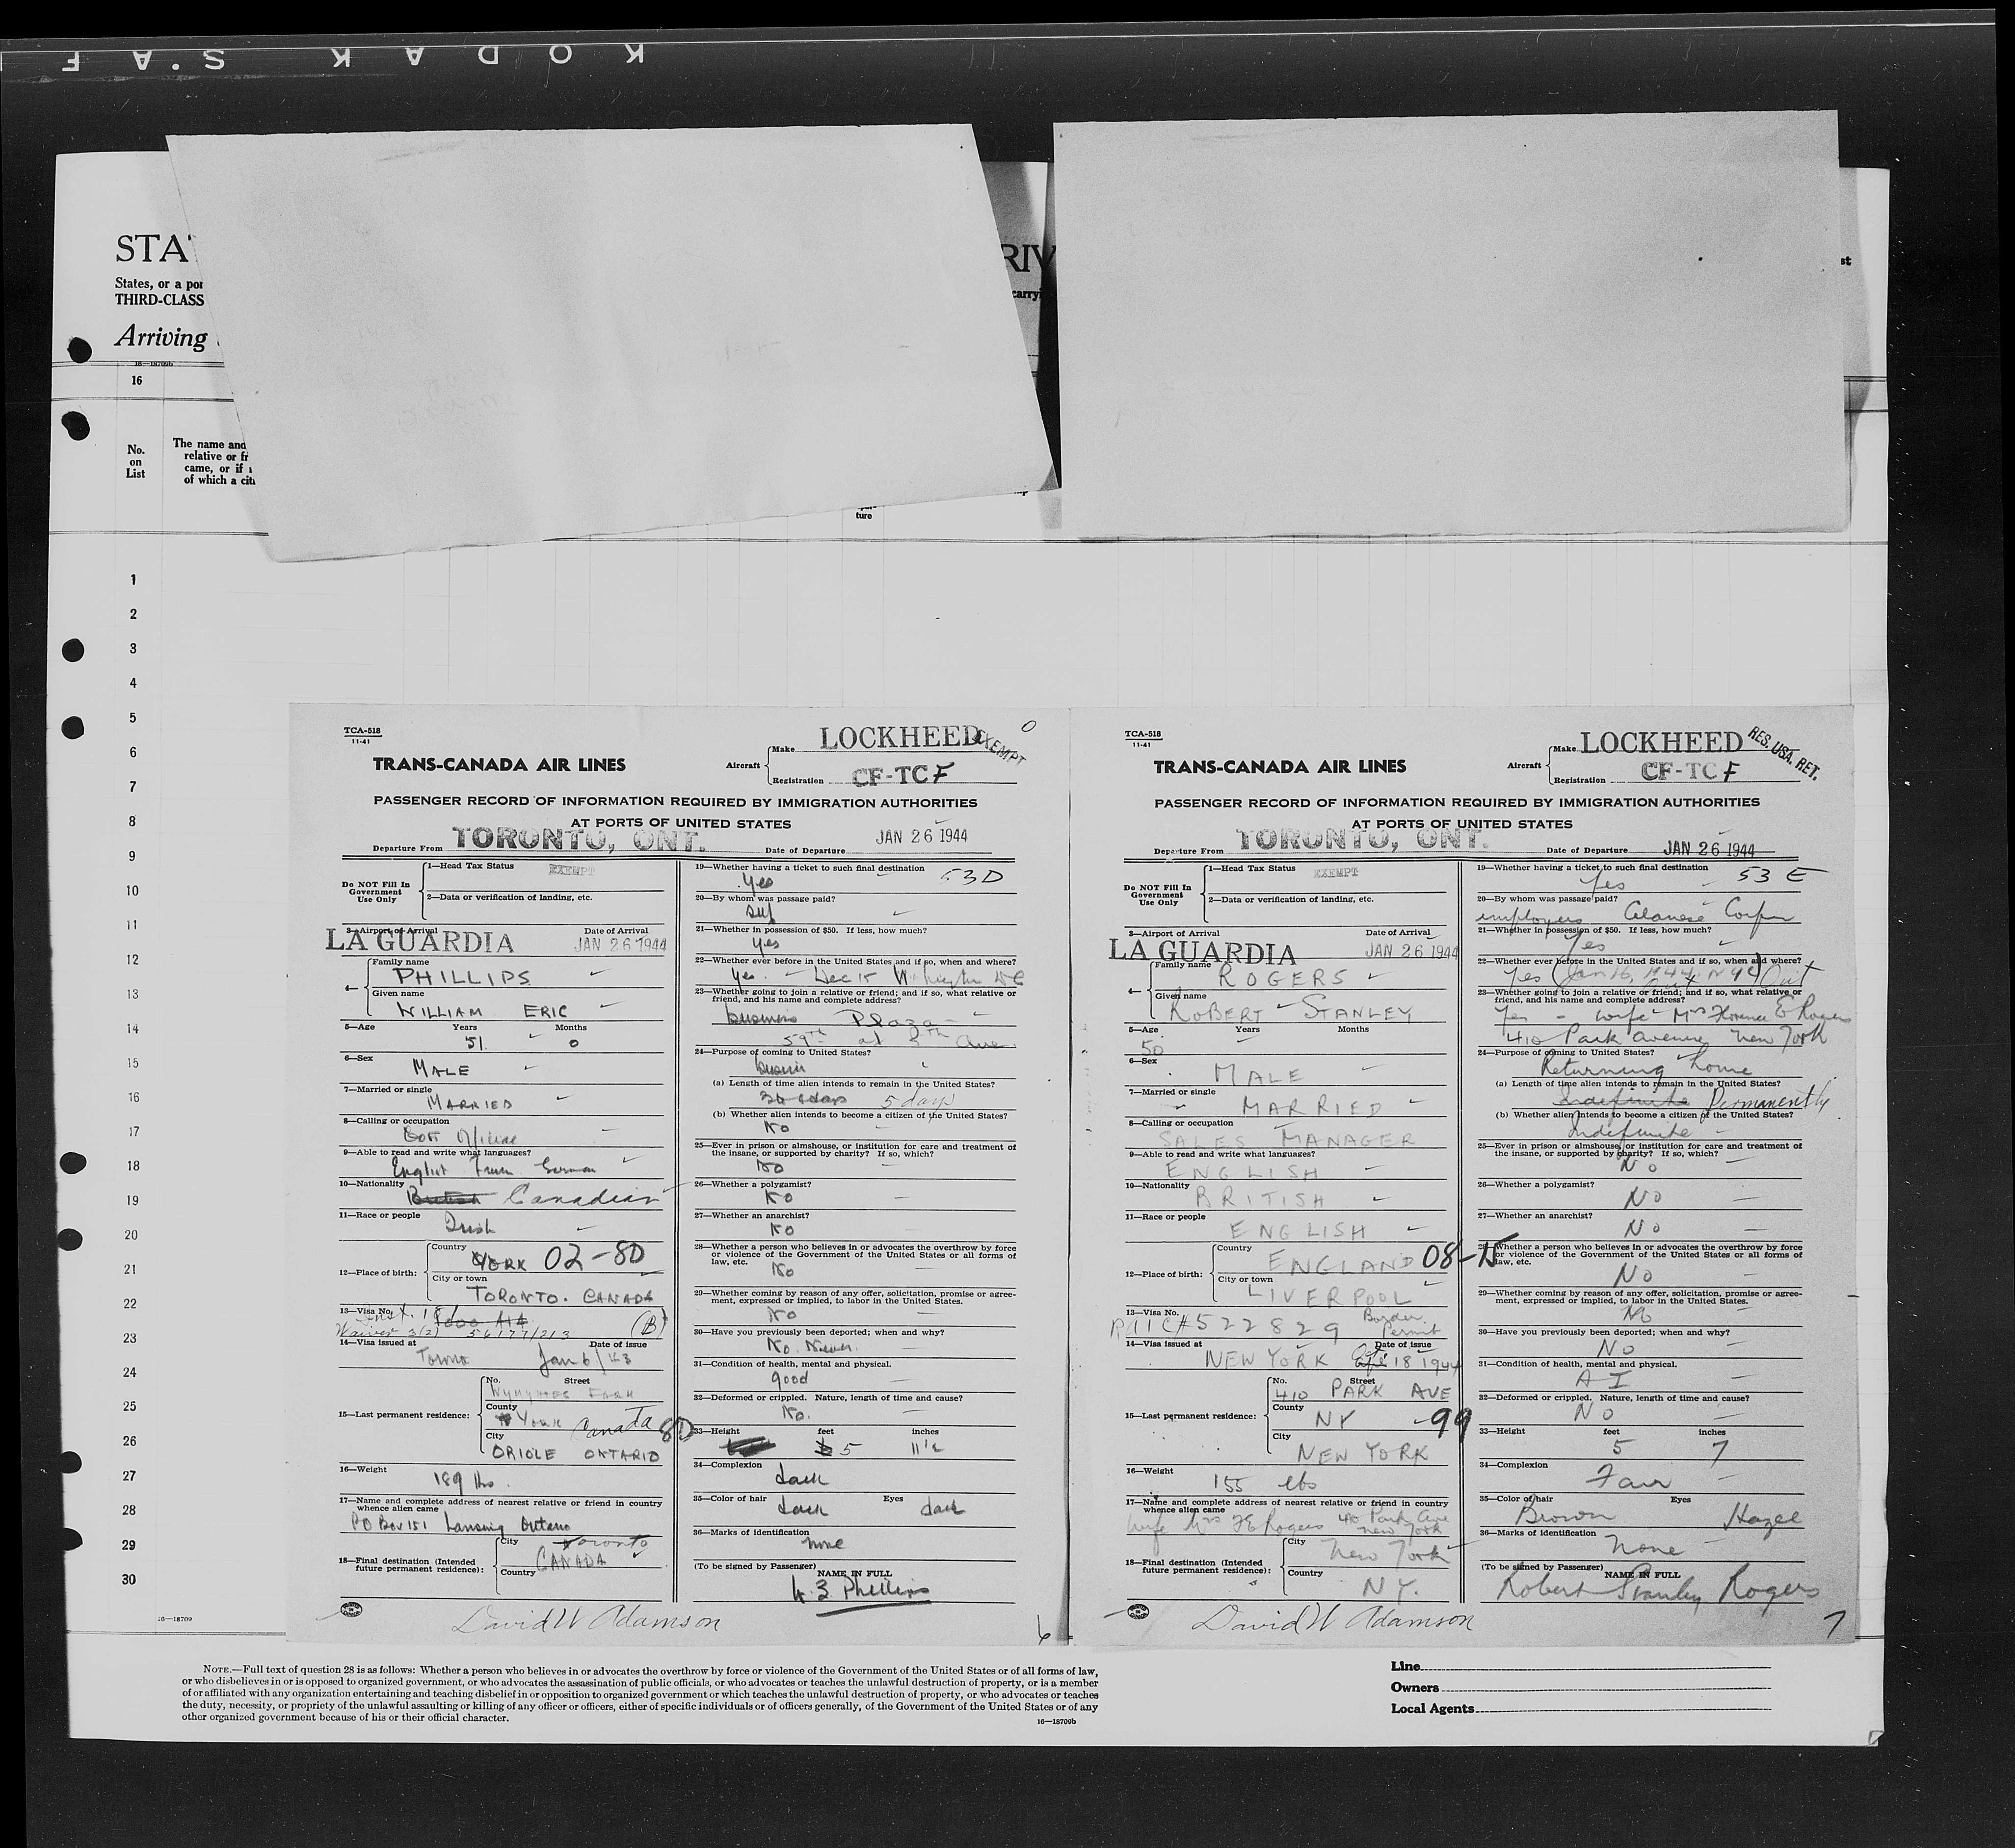 KODAK S.A F
STA
RIV
States, or a por
THIRD-CLASS
carryi
st
Arriving
16—18709b
16
No.
on
List
The name and
relative or fr
came, or if
of which a citi
ture
1
2
3
4
5
6
7
8
9
10
11
12
13
14
15
16
17
18
19
20
21
22
23
24
25
26
27
28
29
30
16—18709
TCA-518
11-41
TRANS-CANADA AIR LINES
Aircraft
Make LOCKHEED
EXEMPT
0
Registration CF-TCF
PASSENGER RECORD OF INFORMATION REQUIRED BY IMMIGRATION AUTHORITIES
AT PORTS OF UNITED STATES
Departure From TORONTO, ONT. Date of Departure JAN 26 1944
Do NOT Fill In
Government
Use Only
1—Head Tax Status EXEMPT
2—Data or verification of landing, etc.
3—Airport of Arrival Date of Arrival
LA GUARDIA JAN 26 1944
4— Family name
PHILLIPS
Given name
WILLIAM ERIC
5—Age Years Months
51 0
6—Sex
MALE
7—Married or single
MARRIED
8—Calling or occupation
Official
9—Able to read and write what languages?
English German
10—Nationality
British Canadian
11—Race or people
Irish
12—Place of birth:
Country
YORK 02-8D
City or town
TORONTO. CANADA
13—Visa No.
Waiver 3(2) 56177/213 (B)
14—Visa issued at Date of issue
Toronto Jan 6/43
15—Last permanent residence:
No. Street
FARM
County
York Canada 8D
City
ORIOLE ONTARIO
16—Weight
189 lbs.
17—Name and complete address of nearest relative or friend in country
whence alien came
PO Box 151 Lansing Ontario
18—Final destination (Intended
future permanent residence):
City Toronto
CANADA
Country
19—Whether having a ticket to such final destination
Yes 53D
20—By whom was passage paid?
self
21—Whether in possession of $50. If less, how much?
yes
22—Whether ever before in the United States and if so, when and where?
Yes. Dec 15 Washington DC
23—Whether going to join a relative or friend; and if so, what relative or
friend, and his name and complete address?
business Plaza
59th at 5th Ave
24—Purpose of coming to United States?
business
(a) Length of time alien intends to remain in the United States?
30 days 5 days
(b) Whether alien intends to become a citizen of the United States?
No
25—Ever in prison or almshouse, or institution for care and treatment of
the insane, or supported by charity? If so, which?
No
26—Whether a polygamist?
No
27—Whether an anarchist?
No
28—Whether a person who believes in or advocates the overthrow by force
or violence of the Government of the United States or all forms of
law, etc.
No
29—Whether coming by reason of any offer, solicitation, promise or agree-
ment, expressed or implied, to labor in the United States.
No
30—Have you previously been deported; when and why?
No. Never.
31—Condition of health, mental and physical.
good
32—Deformed or crippled. Nature, length of time and cause?
No.
33—Height feet inches
5 11½
34—Complexion
dark
35—Color of hair Eyes
dark dark
36—Marks of identification
none
(To be signed by Passenger) NAME IN FULL
W E Phillips
David W Adamson
6
TCA-518
11-41
TRANS-CANADA AIR LINES
Aircraft
Make LOCKHEED
RES. USA. RET.
Registration CF-TCF
PASSENGER RECORD OF INFORMATION REQUIRED BY IMMIGRATION AUTHORITIES
AT PORTS OF UNITED STATES
Departure From TORONTO, ONT. Date of Departure JAN 26 1944
Do NOT Fill In
Government
Use Only
1—Head Tax Status EXEMPT
2—Data or verification of landing, etc.
3—Airport of Arrival Date of Arrival
LA GUARDIA JAN 26 1944
4— Family name
ROGERS
Given name
ROBERT STANLEY
5—Age Years Months
50
6—Sex
MALE
7—Married or single
MARRIED
8—Calling or occupation
SALES MANAGER
9—Able to read and write what languages?
ENGLISH
10—Nationality
BRITISH
11—Race or people
ENGLISH
12—Place of birth:
Country
ENGLAND 08-15
City or town
LIVERPOOL
13—Visa No.
522829 Border
Permit
14—Visa issued at Date of issue
NEW YORK 18 1944
15—Last permanent residence:
No. Street
410 PARK AVE
County
NY -99
City
NEW YORK
16—Weight
155 lbs
17—Name and complete address of nearest relative or friend in country
whence alien came
Wife Mrs F E Rogers 410 Park Ave
New York
18—Final destination (Intended
future permanent residence):
City
New York
Country
NY.
19—Whether having a ticket to such final destination
Yes 53 E
20—By whom was passage paid?
employers Celanese Corpn
21—Whether in possession of $50. If less, how much?
Yes
22—Whether ever before in the United States and if so, when and where?
Yes (Jan 16, 1944. NYC) Out
23—Whether going to join a relative or friend; and if so, what relative or
friend, and his name and complete address?
Yes - wife Mrs Florence E Rogers
410 Park Avenue New York
24—Purpose of coming to United States?
Returning home
(a) Length of time alien intends to remain in the United States?
Indefinite Permanently
(b) Whether alien intends to become a citizen of the United States?
Indefinite
25—Ever in prison or almshouse, or institution for care and treatment of
the insane, or supported by charity? If so, which?
No
26—Whether a polygamist?
No
27—Whether an anarchist?
No
28—Whether a person who believes in or advocates the overthrow by force
or violence of the Government of the United States or all forms of
law, etc.
No
29—Whether coming by reason of any offer, solicitation, promise or agree-
ment, expressed or implied, to labor in the United States.
No
30—Have you previously been deported; when and why?
No
31—Condition of health, mental and physical.
A I
32—Deformed or crippled. Nature, length of time and cause?
No
33—Height feet inches
5 7
34—Complexion
Fair
35—Color of hair Eyes
Brown Hazel
36—Marks of identification
None
(To be signed by Passenger) NAME IN FULL
Robert Stanley Rogers
David W Adamson
7
NOTE.—Full text of question 28 is as follows: Whether a person who believes in or advocates the overthrow by force or violence of the Government of the United States or of all forms of law,
or who disbelieves in or is opposed to organized government, or who advocates the assassination of public officials, or who advocates or teaches the unlawful destruction of property, or is a member
of or affiliated with any organization entertaining and teaching disbelief in or opposition to organized government or which teaches the unlawful destruction of property, or who advocates or teaches
the duty, necessity, or propriety of the unlawful assaulting or killing of any officer or officers, either of specific individuals or of officers generally, of the Government of the United States or of any
other organized government because of his or their official character.
16—18709b
Line
Owners
Local Agents